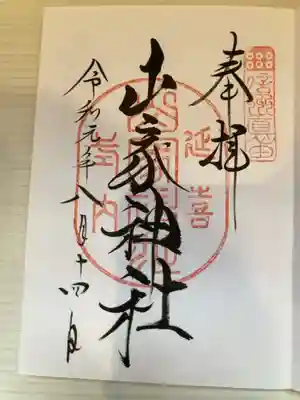 信州真田
奉拝
延喜
山家神社
式内
令和元年八月十四日